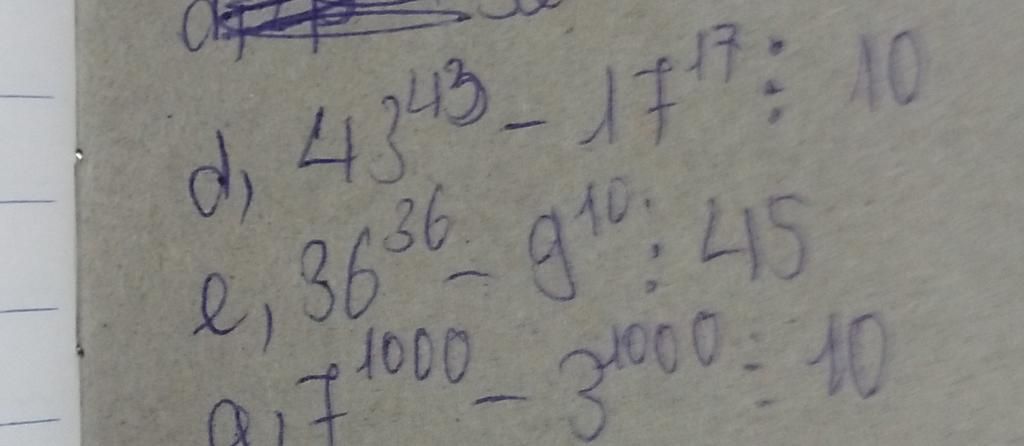 d, 43^43 - 17^17 ⋮ 10
e, 36^36 - 9^10 ⋮ 45
a, 7^1000 - 3^1000 ⋮ 10